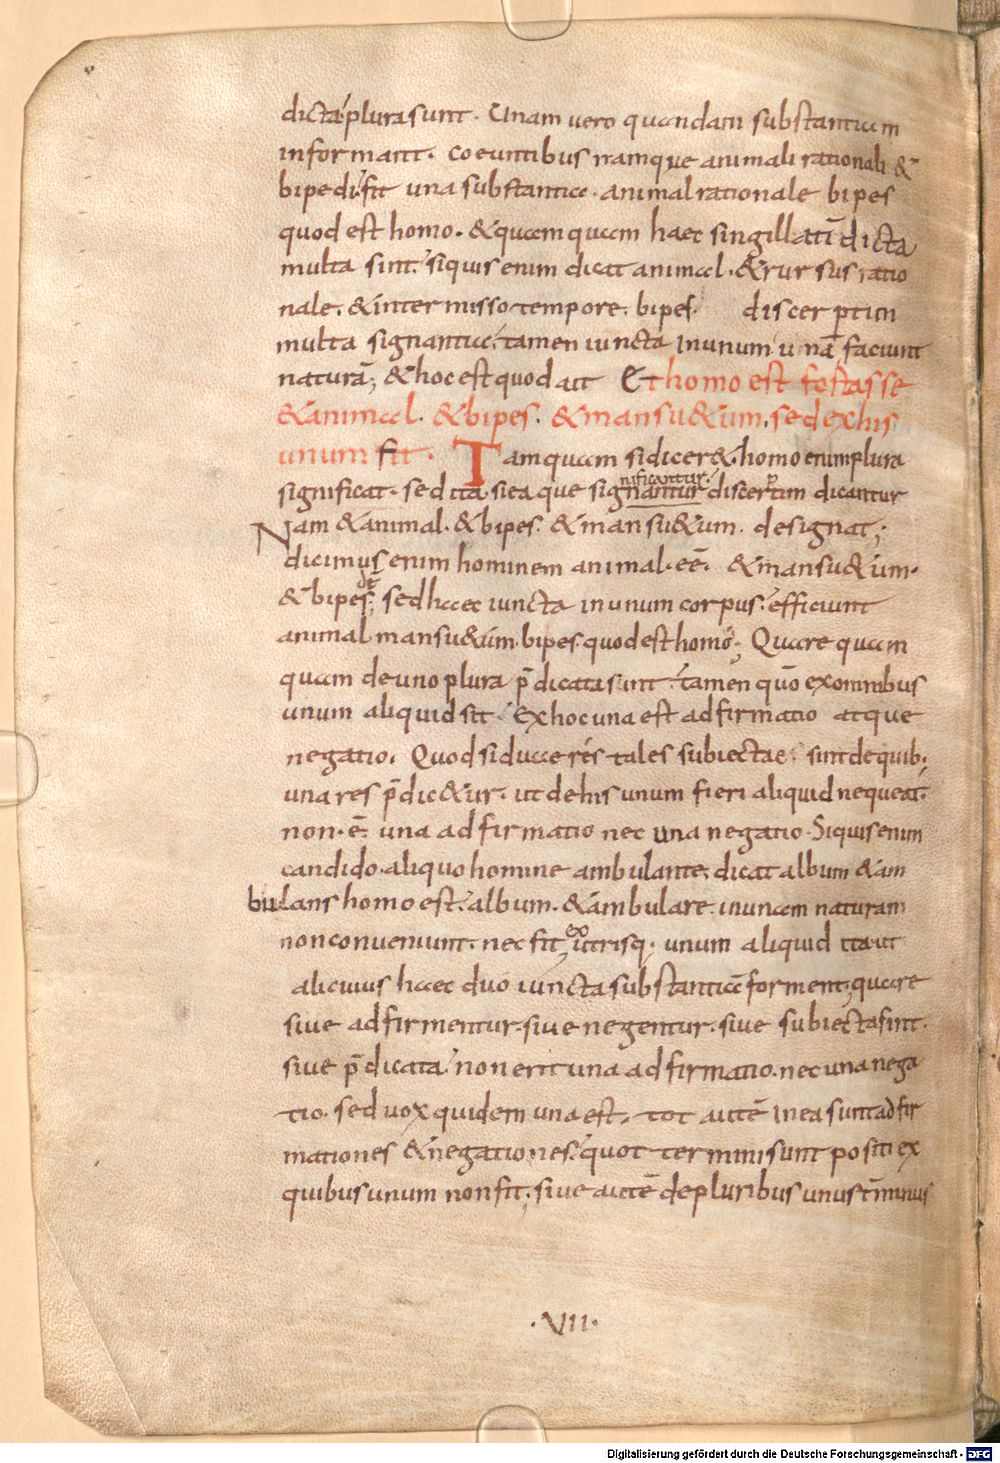 dicta plura sunt. Unam vero quandam substantiam
informant. coeuntibus namque animali rationali &
bipedi. fit una substantia. animal rationale bipes
quod est homo. & quamquam haec singillatī dicta
multa sint. siquis enim dicat animal. & rursus ratio
nale. & intermisso tempore. bipes. discerptim
multa signantia. tamen iuncta in unum unā faciunt
naturā; & hoc est quod ait Et homo est fortasse
& animal. & bipes. & mansu&um. sed ex his
unum fit. Tamquam si dicer&. homo enim plura
significat. sed ita si ea que signantur discerptim dicantur
nificantur
Nam & animal. & bipes. & mansu&um. designat;
dicimus enim hominem animal. eē. & mansu&um.
& bipes; sed haec iuncta in unum corpus. efficiunt
animal mansu&um. bipes. quod est homo; Quare quam
quam de uno plura p̄dicata sunt. tamen quō ex omnibus
unum aliquid sit. Ex hoc una est adfirmatio atque
negatio. Quod si duae res tales subiectae sint de quib.
una res p̄dic&ur. ut de his unum fieri aliquid nequeat.
non. ē. una adfirmatio nec una negatio. Siquis enim
candido aliquo homine ambulante. dicat album & am
bulans homo est. album. & ambulare. in unam naturam
non conveniunt. nec fit ex utrisq. unum aliquid ita ut
alicuius haec duo iuncta substantiā forment; quare
sive adfirmentur. sive negentur. sive subiecta sint.
sive p̄dicata. non erit una adfirmatio. nec una nega
tio. sed vox quidem una est. tot autē in ea sunt adfir
mationes & negationes. quot termini sunt positi ex
quibus unum non fit. sive autē de pluribus unus t̄minus
.VII.
Digitalisierung gefördert durch die Deutsche Forschungsgemeinschaft - DFG